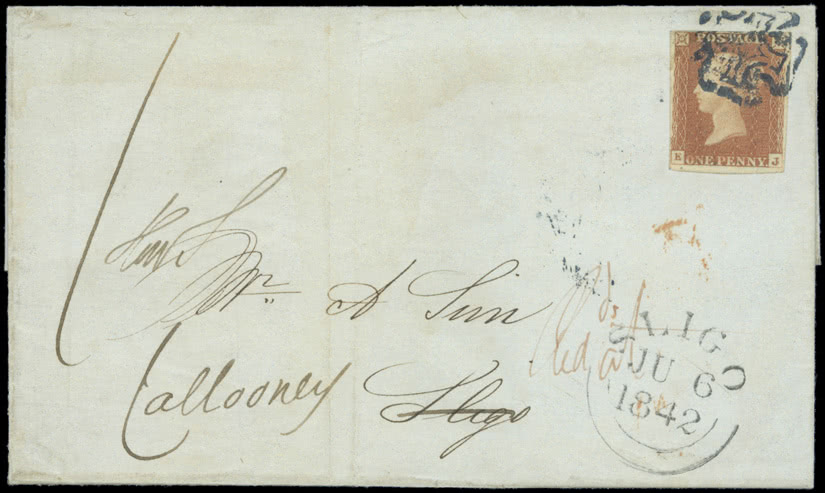 POSTAGE
E J
ONE PENNY
Mr. A Sim
Callooney Sligo
SLIGO
JU 6
1842